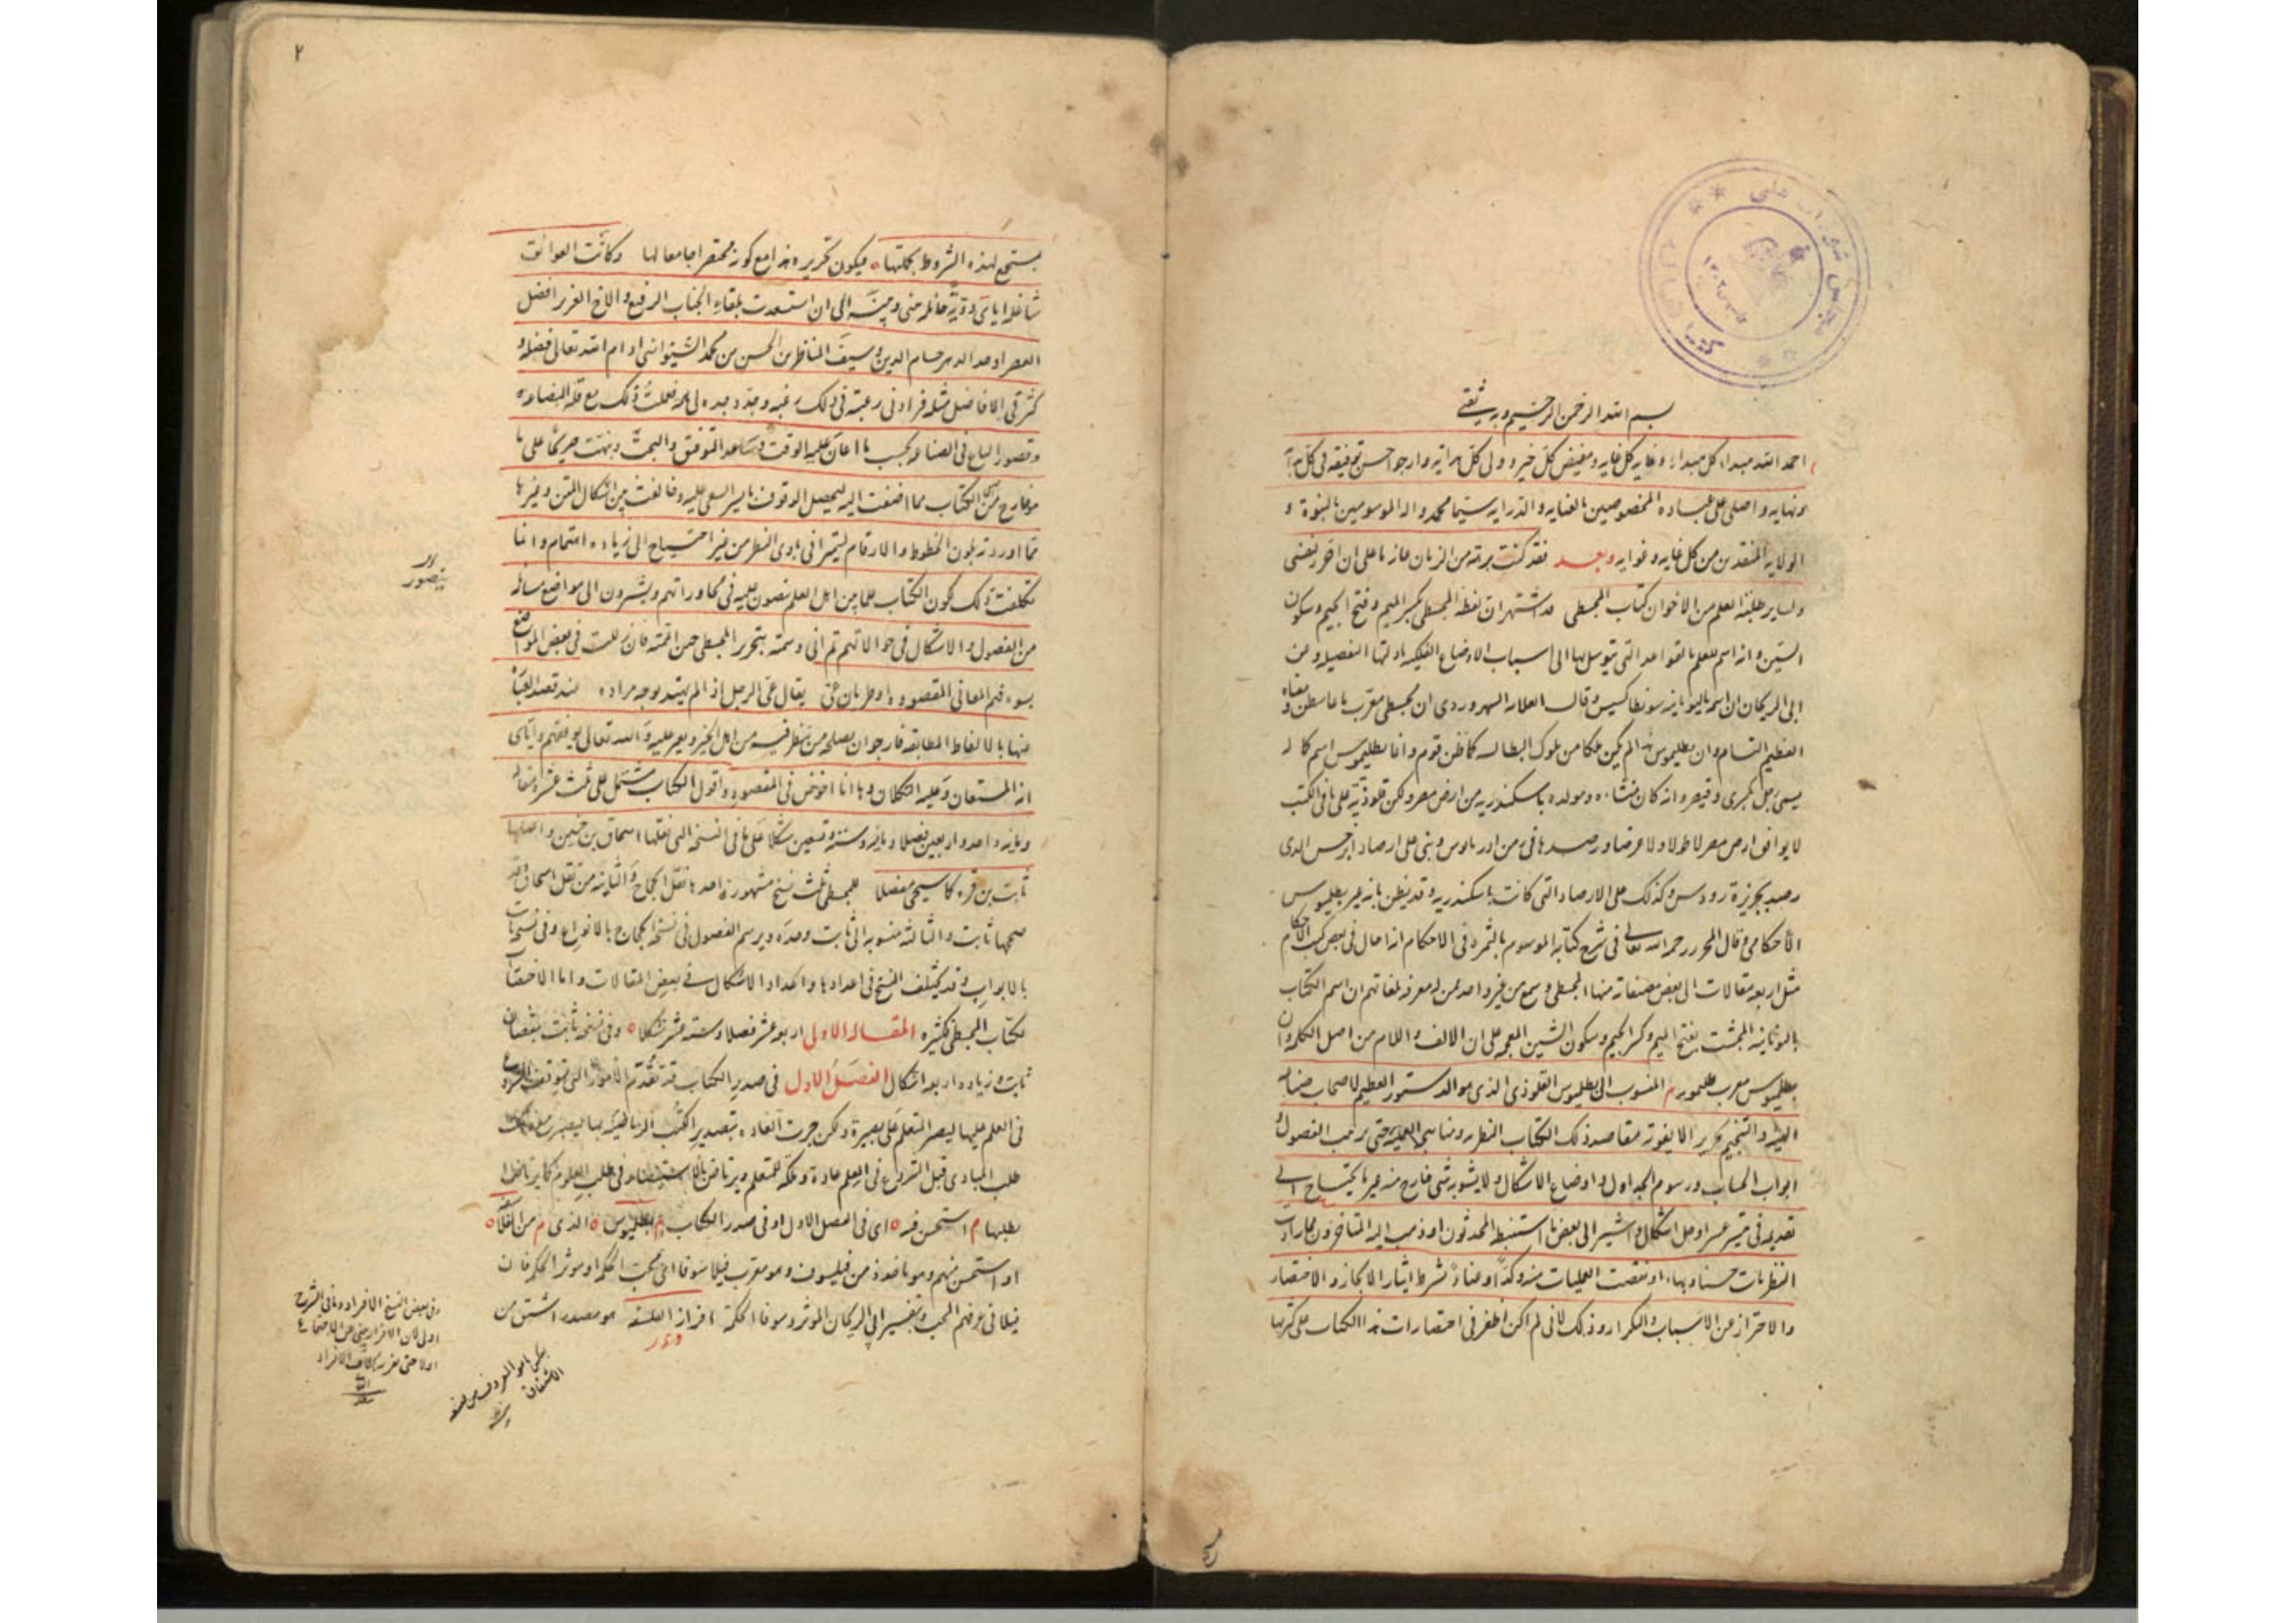 بسم الله الرحمن الرحيم وبه ثقتي
احمد الله مبدا كل مبداء وغايه كل غايه ومفيض كل خير وولي كل هدايه وارجو احسن توفيقه في كل بداية
ونهايه واصلي على عباده المخصوصين بالعنايه والدرايه سيما محمد واله الموسومين بالنبوة و
الولايه المنقذين من كل غايه وغوايه وبعد فقد كنت برهة من الزمان عازما على ان احرر لنفسي
ولساير طلبة العلم من الاخوان كتاب المجسطي قد اشتهر ان لفظ المجسطي بكسر الميم وفتح الجيم وسكون
السين وانه اسم للعلم بالقواعد التي يتوسل بها الى اسباب الاوضاع الفلكيه بادلتها التفصيليه وعن
ابي الريحان ان اسمه باليونانيه سونطاكسيس وقال العلامه السهروردي ان مجسطي معرب ماغاسطن ومعناه
العظيم التام وان بطليموس هذا لم يكن ملكا من ملوك البطالسه كما ظن قوم وانما بطليموس اسم كما
يسمى رجل بكسرى وقيصر وانه كان منشاءه ومولده باسكندريه من ارض مصر ولكن قلوذية على ما في الكتب
لا يوافق ارض مصر لا طولا ولا عرضا ورصدها في زمن ادريانوس وبنى على ارصاد ابرخس الذي
رصد بجزيرة رودس وكذلك على الارصاد التي كانت باسكندريه وقد يظن بانه غير بطليموس
الاحكامي وقال المحرر رحمه الله تعالى في شرح كتابه الموسوم بالثمرة في الاحكام انه احال في بعض كتب الاحكام
مثل اربعه مقالات الى بعض مصنفاته منها المجسطي وسمع من غير واحد ممن له معرفة بلغاتهم ان اسم الكتاب
باليونانيه المجشت بفتح الميم وكسر الجيم وسكون الشين المعجمه على ان الالف واللام من اصل الكلمه وان
بطليموس معرب م المنسوب الى بطليموس القلوذي الذي هو الدستور العظيم لاصحاب صناعة
الهيئه والتنجيم تحريرا لا يفوته مقاصد ذلك الكتاب النظريه ومناهجه العمليه حتى ترتيب الفصول و
ابواب الحساب ورسوم الجداول واوضاع الاشكال ولا يشوبه شي خارج منه غير ما يحتاج الى
تقديمه في تيسير عسر او حل اشكال واشير الى بعض ما استنبطه المحدثون او ذهب اليه المتاخرون مما زادت
النظريات حسنا وبهاء او نقصت العمليات كدا وعناء بشرط ايثار الايجاز والاختصار
والاحتراز عن الاسباب والتكرار وذلك لاني لم اكن اظفر في اختصارات هذا الكتاب على كثرتها
٢
بمستجمع لهذه الشروط بجملتها فيكون تحريره هذا مع كونه مختصرا جامعا لها وكانت العوائق
شاغله اياي دونه حائله بيني وبينه الى ان استسعدت بلقاء الجناب الرفيع والاخ العزيز افضل
العصر اوحد الدهر حسام الدين وسيف المناظرين الحسن بن محمد السيواسي ادام الله تعالى فضله و
كثر في الافاضل مثله فزادني رغبته في ذلك رغبه وجدد جده لي فعملت ذلك مع قلة البضاعه
وقصور الباع في الصناعه بحسب ما اعان عليه الوقت وساعد التوفيق والبخت ونبهت صريحا على ما
هو خارج من الكتاب مما اضفت اليه ليحصل الوقوف بايسر السعي عليه وخالفت بين اشكال المتن وغيرها
مما اوردته بلون الخطوط والارقام ليتمز في بادي النظر من غير احتياج الى زياده اهتمام وانما
تكلفت ذلك لكون الكتاب علما بين اهل العلم ينصون عليه في محاوراتهم ويشيرون الى مواضع مسائله
من الفصول والاشكال في حوالاتهم ثم اني وسمته بتحرير المجسطي حين اتممته فان زللت في بعض المواضع
بسوء فهم المعاني المقصوده او طريان عي يقال عي الرجل اذا لم يهتد لوجه مراده عند قصد العبارة
عنها بالالفاظ المطابقه فارجو ان يصلحه من ينظر فيه من اهل الخير ويعبر عليه والله تعالى يوفقهم واياي
انه المستعان وعليه التكلان وها انا اخوض في المقصود واقول الكتاب مشتمل على ثلث عشرة مقاله
ومايه واحد واربعين فصلا ومايه وسته وتسعين شكلا على ما في النسخه التي نقلها اسحاق بن حنين واصلحها
ثابت بن قره كما سيجي مفصلا للمجسطي ثلث نسخ مشهوره احدها نقل الحجاج والثانيه من نقل اسحاق وقد
صححها ثابت والثالثه منسوبه الى ثابت وحده ويرسم الفصول في نسخه الحجاج بالانواع وفي نسخة ثابت
بالابواب وقد يختلف النسخ في اعدادها واعداد الاشكال في بعض المقالات واما الاختصارات
لكتاب المجسطي فكثيره المقاله الاولى اربعه عشر فصلا وسته عشر شكلا وفي نسخه ثابت بنقصان
ثابت وزياده اربعه اشكال الفصل الاول في صدر الكتاب قد تقدم الامور التي يتوقف الشروع
في العلم عليها ليصير المتعلم على بصيرة ولكن جرت العاده بتصدير الكتب الرياضيه بما
طلب المبادي قبل الشروع في العلم عادة وملكة للمتعلم ويرتاض بالاستيفاء في طلب العلوم كما يرتاض
بطلبها م استحسن فيه اي في الفصل الاول او في صدر الكتاب م بطليموس الذي م من الفلاسفه
او استحسن منهم وهو ماخوذ من فيلسوف وهو معرب فيلاسوفا اي محب الحكمه او موثر الحكمه فان
فيلا في عرفهم المحب وتفسير ابي الريحان الموثر وسوفا الحكمة افراز الفلسفه هو مصدر اشتق من
وفي بعض النسخ الافراد وما في الشرح